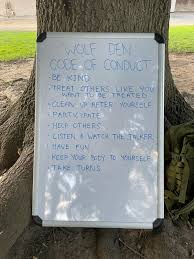 WOLF DEN
CODE OF CONDUCT
• BE KIND
• TREAT OTHERS LIKE YOU
WANT TO BE TREATED
• CLEAN UP AFTER YOURSELF
• PARTICIPATE
• HELP OTHERS
• LISTEN & WATCH THE TALKER
• HAVE FUN
• KEEP YOUR BODY TO YOURSELF
• TAKE TURNS